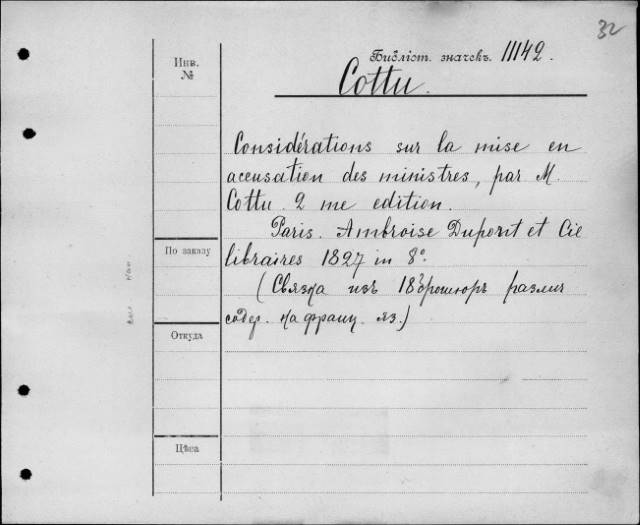 32
Инв.
№
Библіот. значекъ. 11142.
Cottu.
Considérations sur la mise en
accusation des ministres, par M.
Cottu. 2 me edition.
Paris. Ambroise Dupont et Cie
libraires 1827 in 8º.
(Связка изъ 18 брошюръ различ
содер. на франц. яз.)
По заказу
Откуда
Цѣна